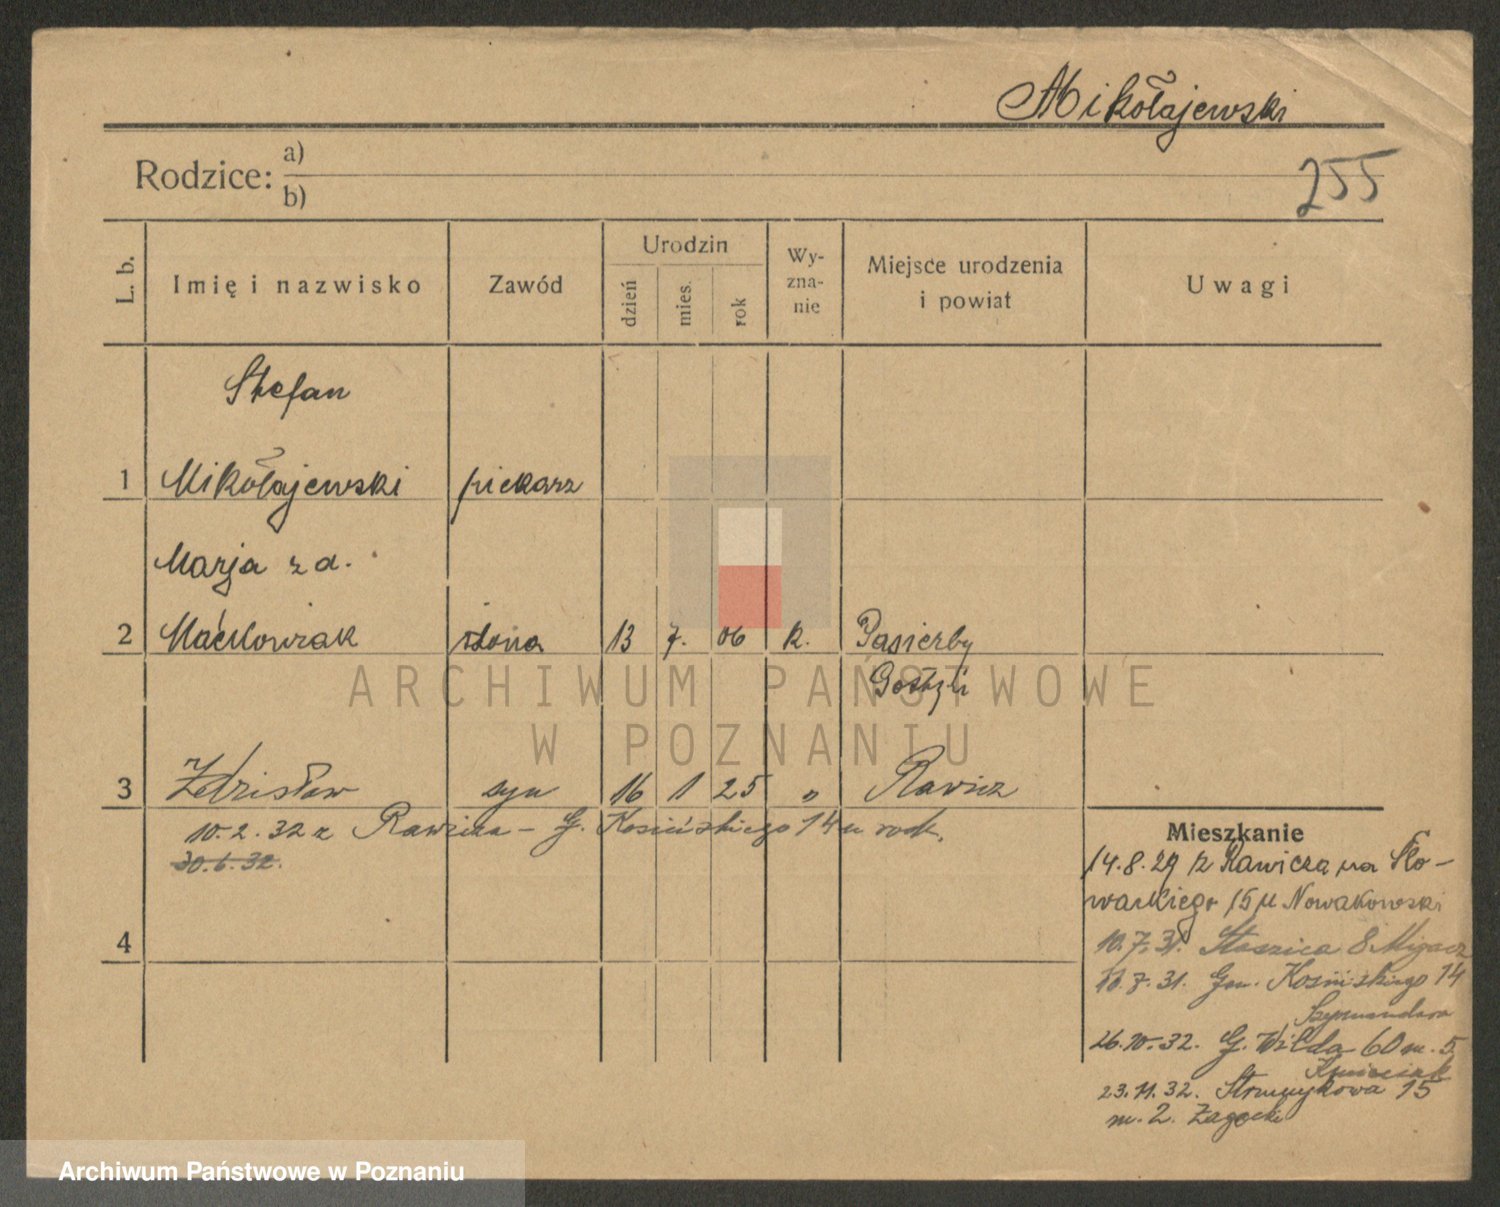 Mikołajewski
255
Rodzice: a)
b)
L. b.
Imię i nazwisko
Zawód
Urodzin
dzień
mies.
rok
Wy-
zna-
nie
Miejsce urodzenia
i powiat
Uwagi
Stefan
1 Mikołajewski piekarz
Marja z d.
2 Maćkowiak żona 13 7. 06 k. Pasierby
Gostyń
3 Zdzisław syn 16 1 25 " Rawicz
10.2.32 z Rawicza - G. Kosińskiego 14 u rodz.
30.6.32.
4
Mieszkanie
14.8.29 z Rawicza na Sło-
wackiego 15 u Nowakowski
10.7.31. Staszica 8
13.7.31. Gen. Kosińskiego 14
26.10.32. G. Wilda 60 m. 5
23.11.32. Strumykowa 15
m. 2. Zagocki
ARCHIWUM PAŃSTWOWE
W POZNANIU
Archiwum Państwowe w Poznaniu